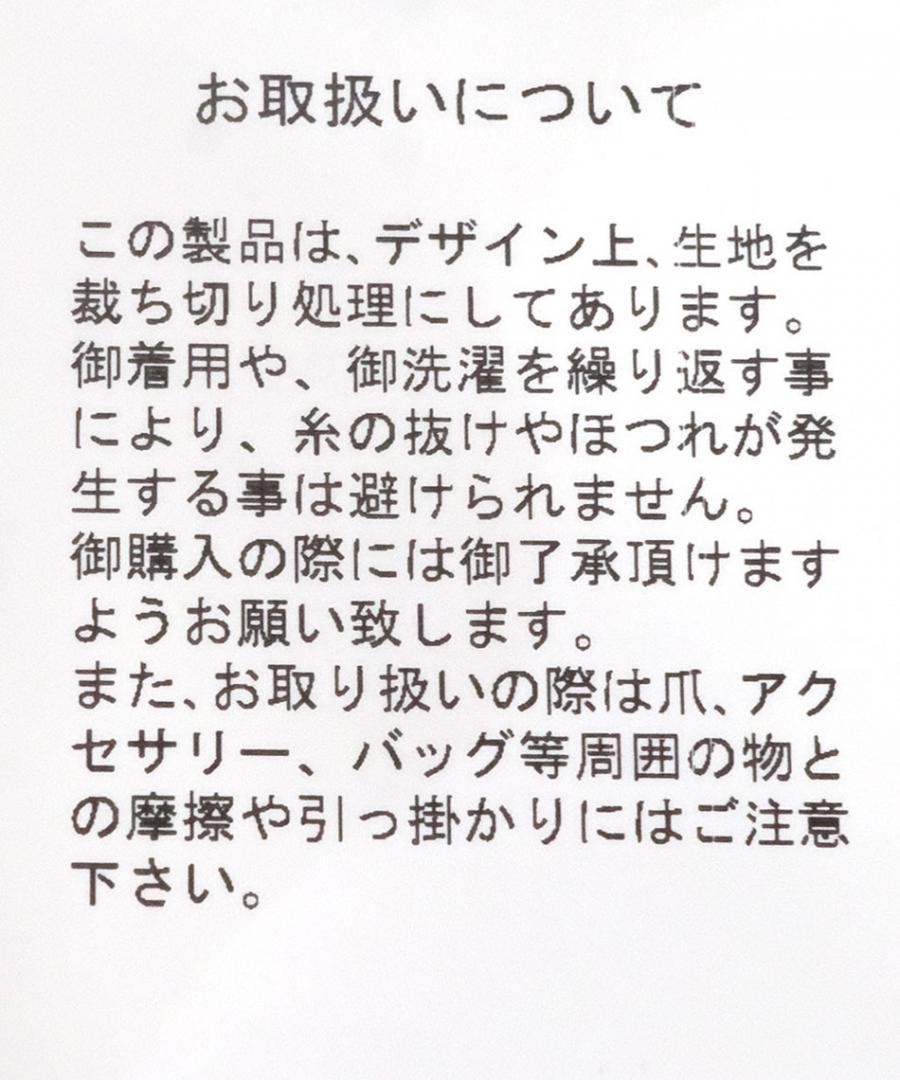 お取扱いについて
この製品は、デザイン上、生地を
裁ち切り処理にしてあります。
御着用や、御洗濯を繰り返す事
により、糸の抜けやほつれが発
生する事は避けられません。
御購入の際には御了承頂けます
ようお願い致します。
また、お取り扱いの際は爪、アク
セサリー、バッグ等周囲の物と
の摩擦や引っ掛かりにはご注意
下さい。